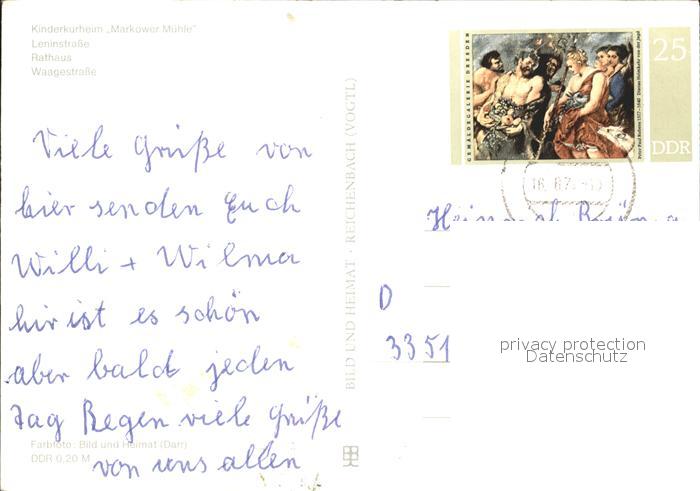 Kinderkurheim „Markower Mühle"
Leninstraße
Rathaus
Waagestraße
Viele Grüße von
hier senden Euch
Willi + Wilma
hir ist es schön
aber bald jeden
Tag Regen viele Grüße
von uns allen
Farbfoto: Bild und Heimat (Darr)
DDR 0,20 M
BILD UND HEIMAT · REICHENBACH (VOGTL)
GEMÄLDEGALERIE DRESDEN
Peter Paul Rubens 1577-1640 Dianas Heimkehr von der Jagd
25
DDR
D
3351
privacy protection
Datenschutz